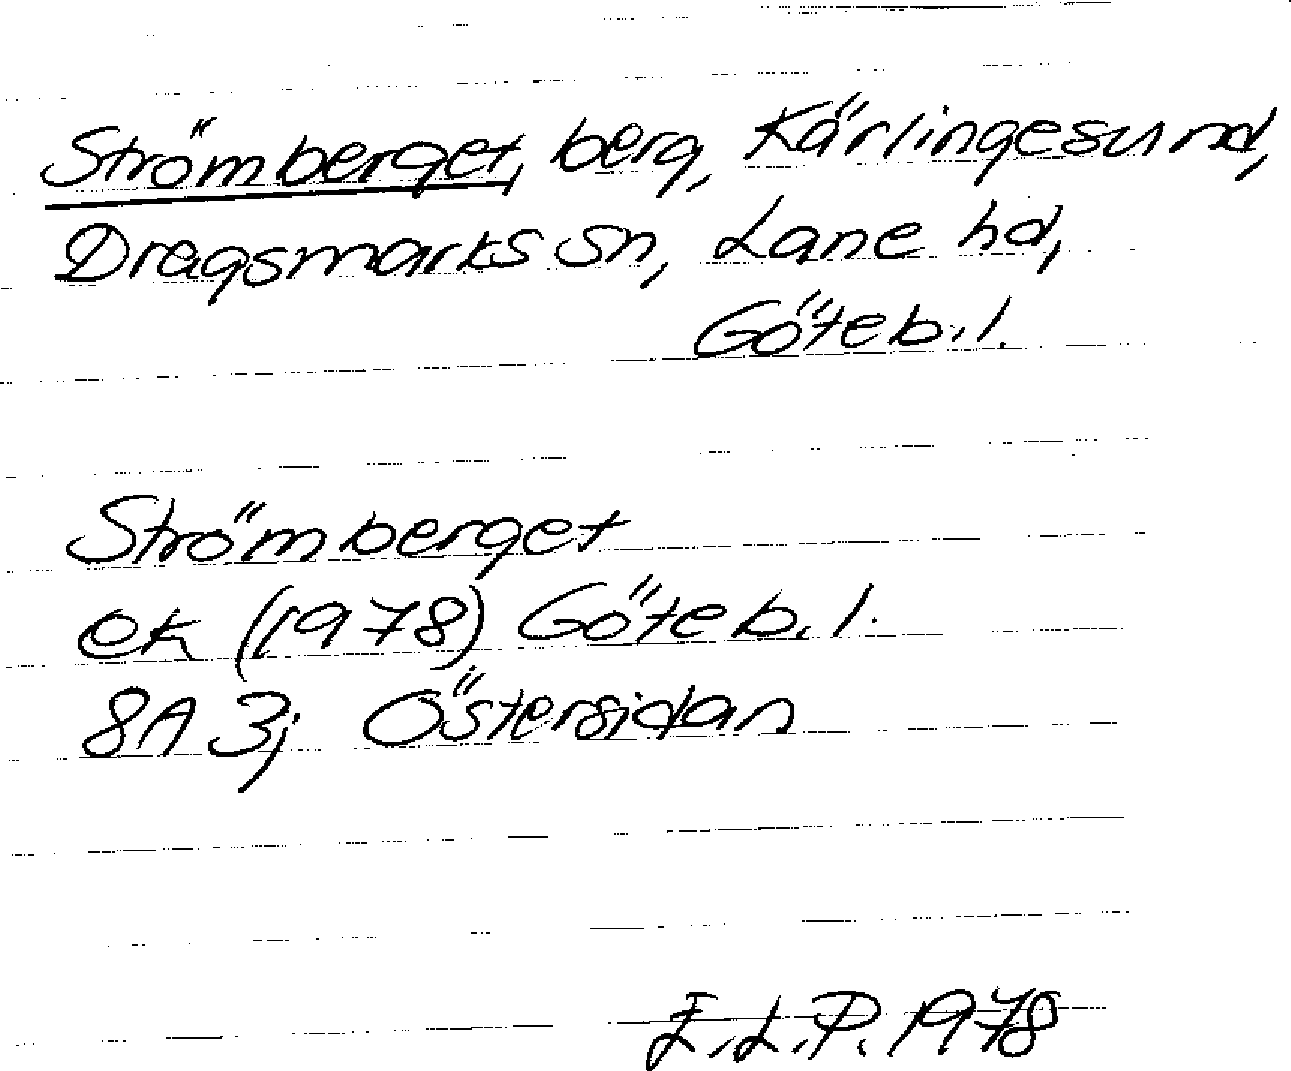 Strömberget, berg, Kärlingesund,
Dragsmarks sn, Lane hd,
Göteb.l.
Strömberget
ek (1978) Göteb.l.
8A 3j Östersidan
E.L.P. 1978